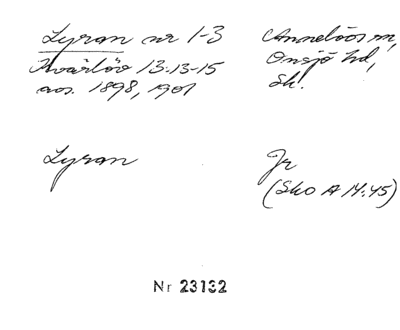 Lyran nr 1-3
Kvärlöv 13:13-15
avs. 1898, 1901
Annelövs sn,
Onsjö hd,
Sk.
Lyran
Jr
(Sko A 14:45)
Nr 23132